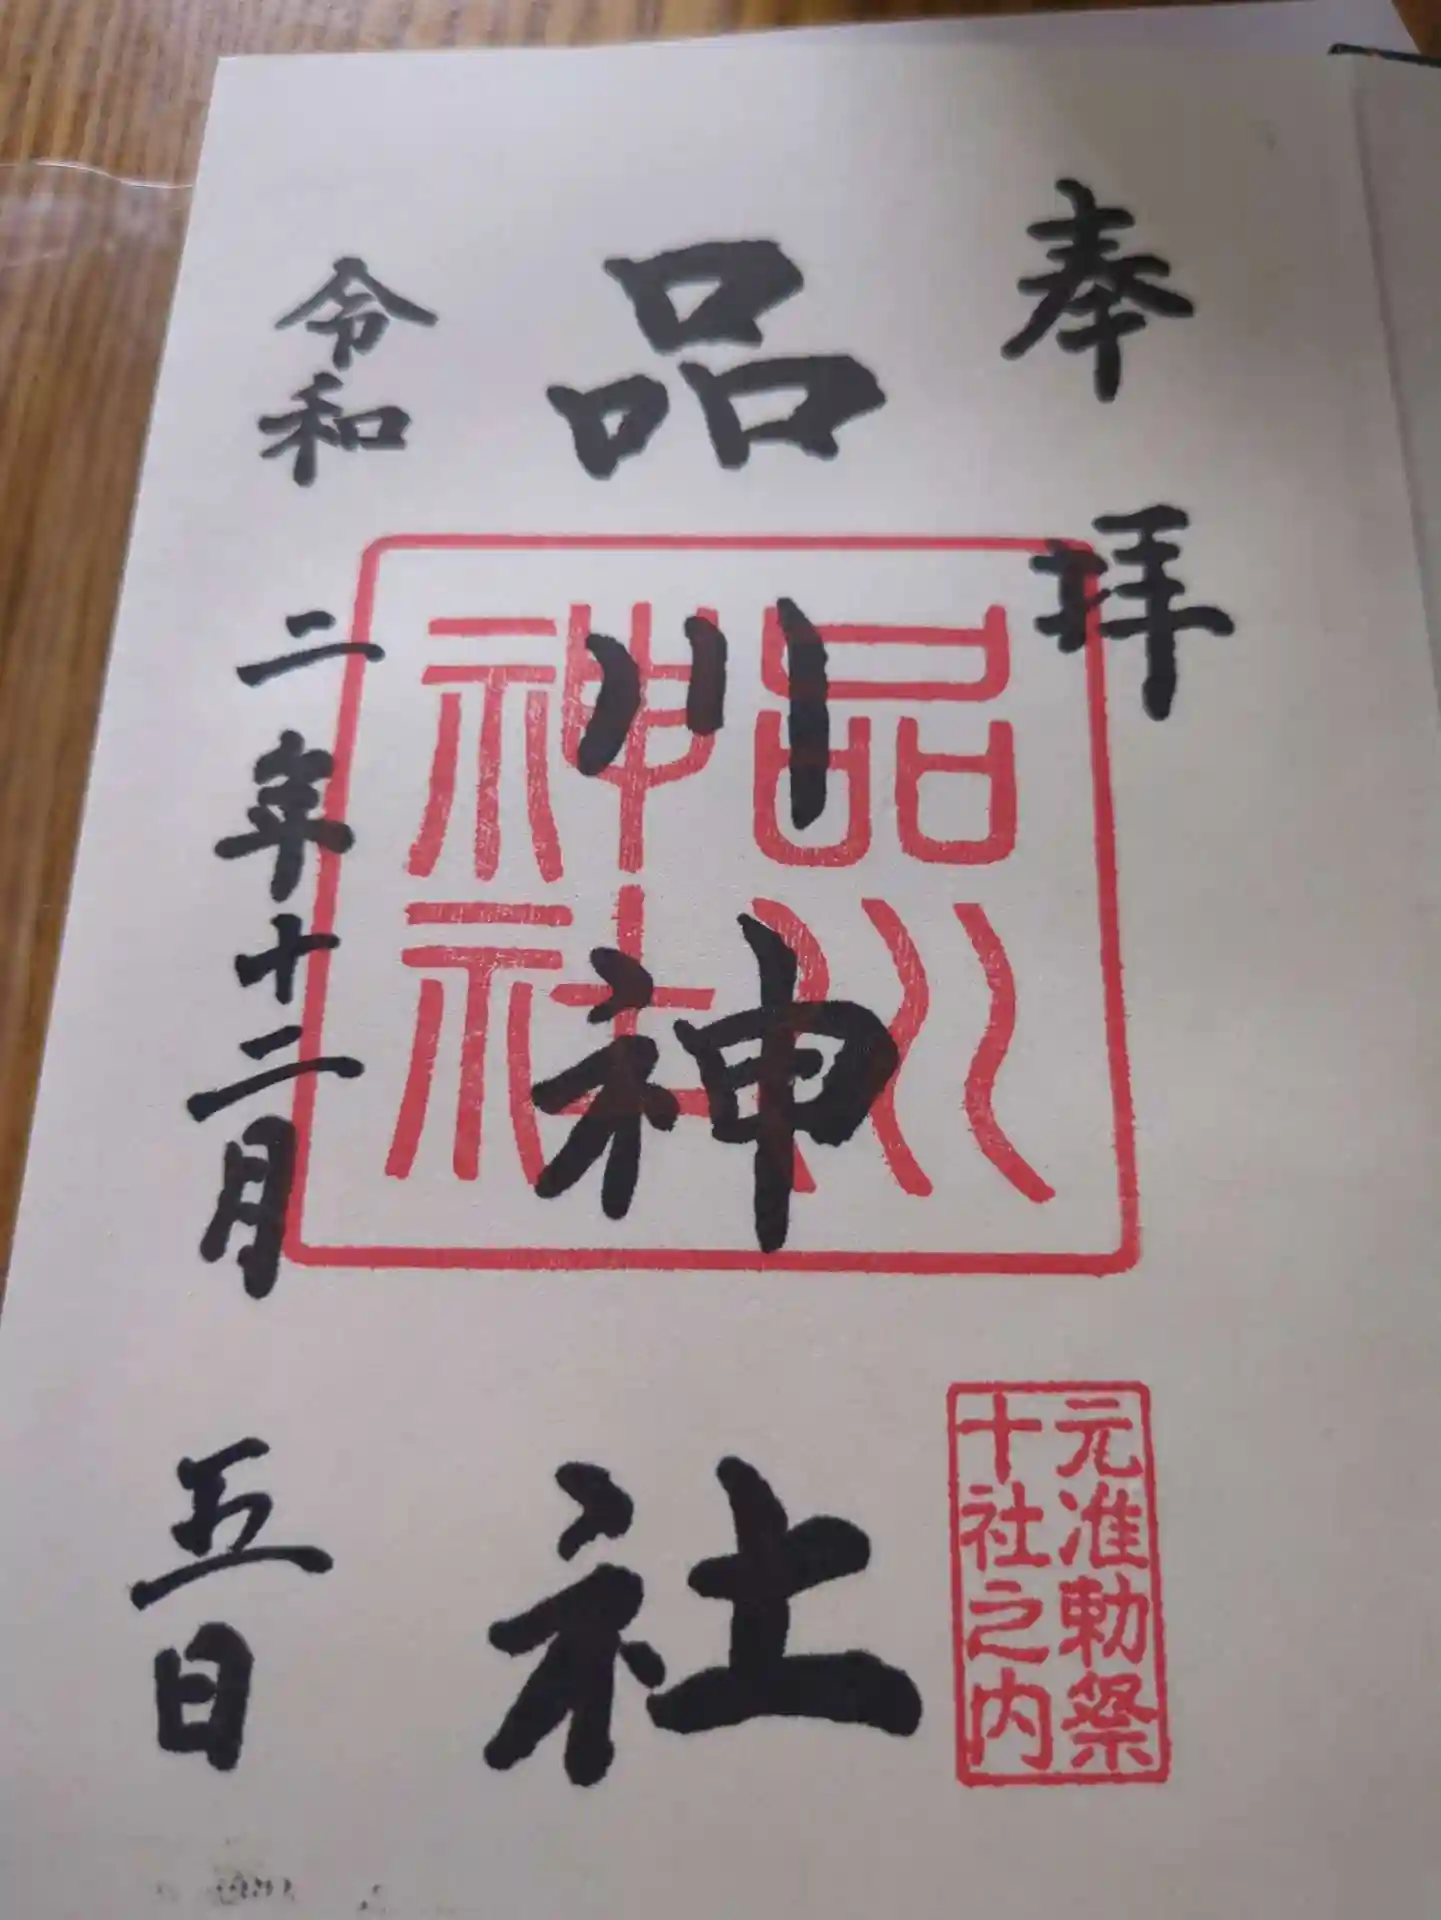 奉拝
品川神社
品川
神社
元准勅祭
十社之内
令和二年十二月五日